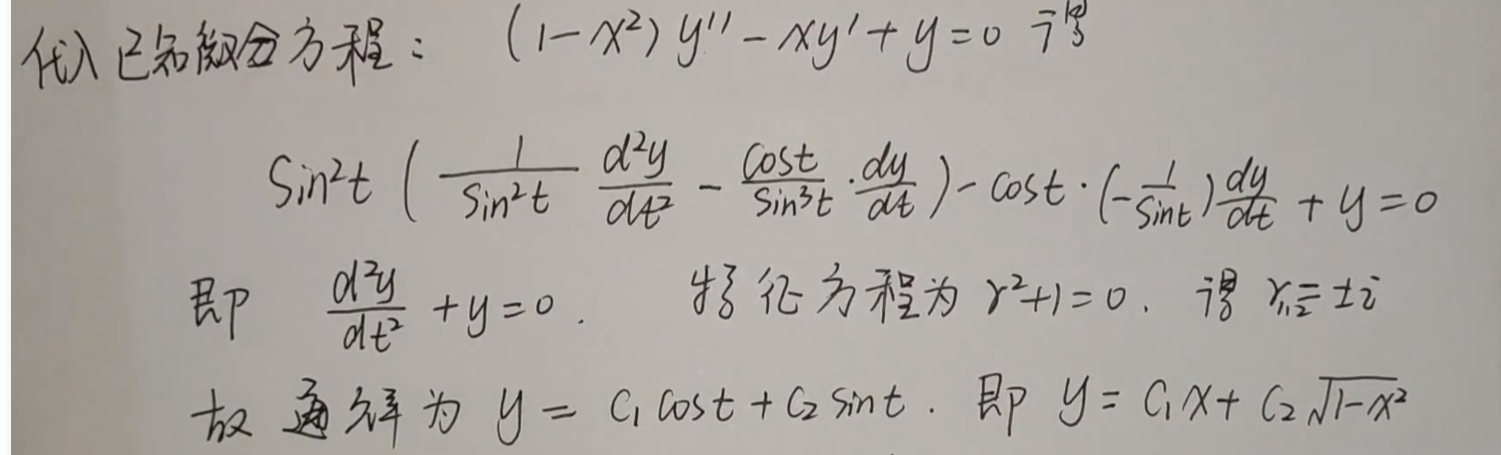 代入已知微分方程： (1-x²)y''-xy'+y=0 得
Sin²t ( 1/Sin²t d²y/dt² - Cost/Sin³t · dy/dt ) - Cost · (-1/Sint) dy/dt + y = 0
即 d²y/dt² + y = 0 . 特征方程为 r²+1=0 . 得 r₁,₂=±i
故通解为 y = C₁ Cost + C₂ Sint . 即 y = C₁x + C₂√(1-x²)